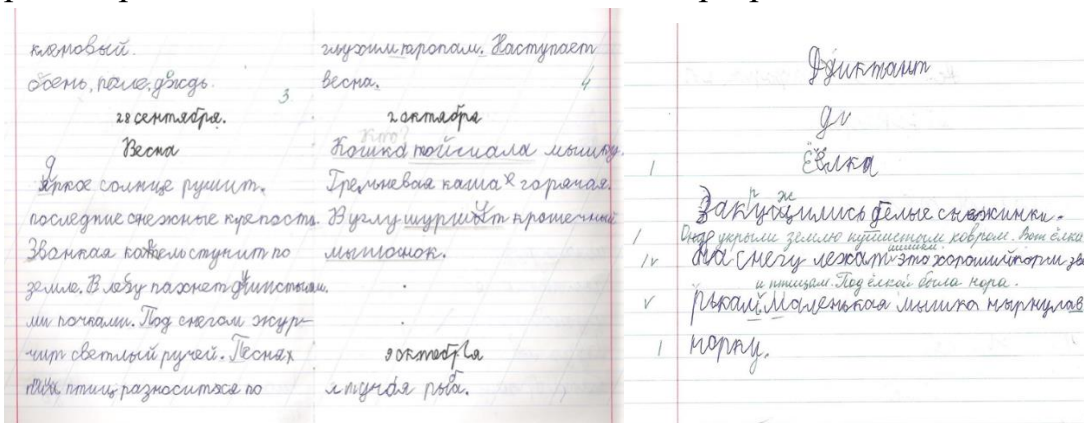 кленовый.
осень, поле, дождь.
3
28 сентября.
Весна
яркое солнце рушит.
последние снежные крепости.
Званкая капель стучит по
земле. В лесу пахнет душисты-
ми почками. Под снегом жур-
чит светлый ручей. Песнях
птиц разносится по
глухим тропам. Наступает
весна.
4
2 октября
Кто?
Кошка поймала мышку.
Гремневая каша горячая.
В углу шуршит крошечный
мышонок.
9 октября
летучая рыба.
Диктант
Ёлка
Закружились белые снежинки.
Они укрыли землю пушистым ковром. Вот ёлка
шишки.
На снегу лежат это хороший корм зве
и птицам. Под ёлкой была нора.
рькам. Маленькая мышка нырнула в
норку.